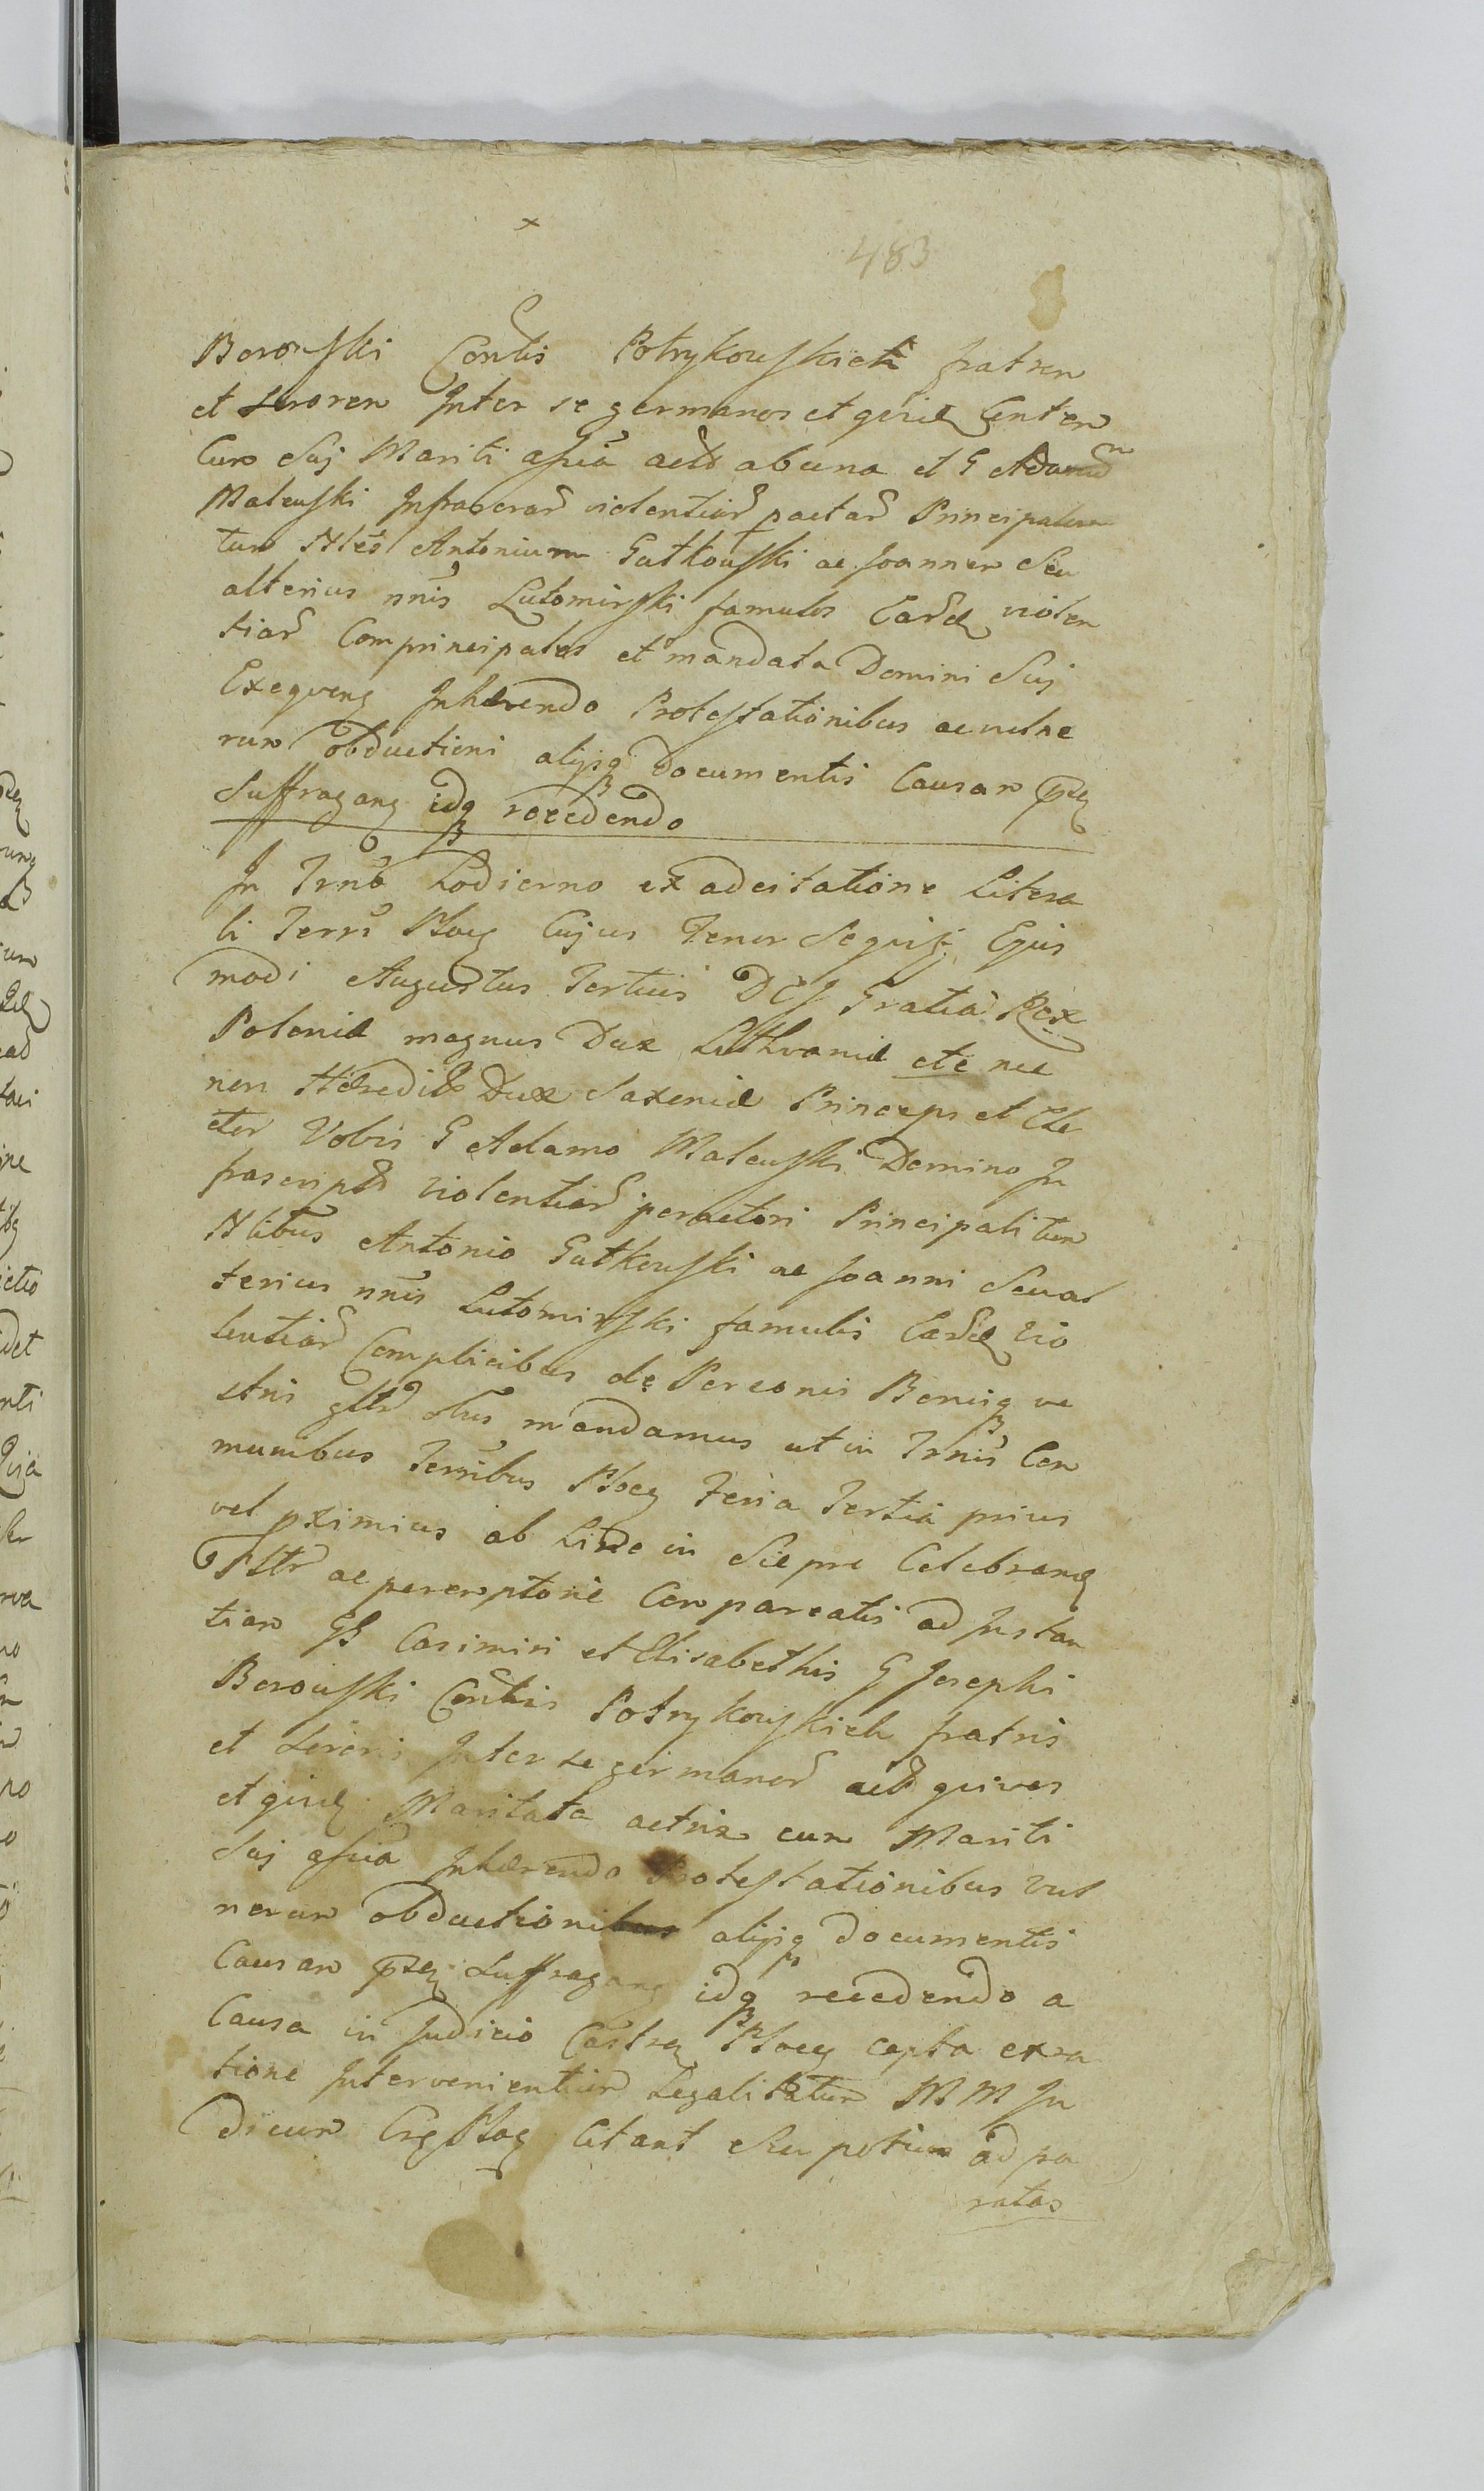 483
Borowski Conthis Potrykowskich fratrem
et sororem Inter se germanos et
Cum Suj Mariti assña actõ ab una et G Adamũ
Malewski Infrascrar violentiar pactar Principalem
tum Nlẽs Antonium Gutkowski ac Joannem Seu
alterius nnis Lutomirski famulos Eard violen
tiar Comprincipales et mandata Domini Suj
Exequeng Inhærendo Protestationibus ac vulne
rum obductioni alijsq documentis Causam pzeg
Suffragang idq recedendo
In Trnõ hodierno ex adcitatione Litera
li Terri Ploc Cujus Tenor Seguit Ejus
modi Augustus Tertius DEI Gratia Rex
Poloniæ magnus Dux Lithvaniæ etc nec
non Hæredit Dux Saxoniæ Princeps et Ele
ctor Vobis G Adamo Malewski Domino In
frascript violentiar peractori Principali tum
Nlibus Antonio Gutkowski ac Joanni Seu al
terius nnis Lutomirski famulis Eard vio
lentiar Complicibus de Personis Bonisq ve
stris gltr õbus mandamus ut in Trnis Con
munibus Terribus Ploc Feria Tertia prius
vel pximius ab hinc in Sierpc Celebrand
Pltr ac peremptorie Compareatis ad Instan
tiam GG Casimiri et Elisabethis G Josephi
Borowski Conthis Potrykowskich fratris
et Sororis Inter se germanor
et Maritata actrix cum Mariti
Suj assña Inhærendo Protestationibus vul
nerum obductioni alijsq documentis
Causam pzeg Suffragang idq recedendo a
Causa in Judicio Castren Ploc cepta ex ra
tione Intervenientium Legalitatum MM Ju
dicum Crg Ploc Citant Seu potius ad pa
ratas